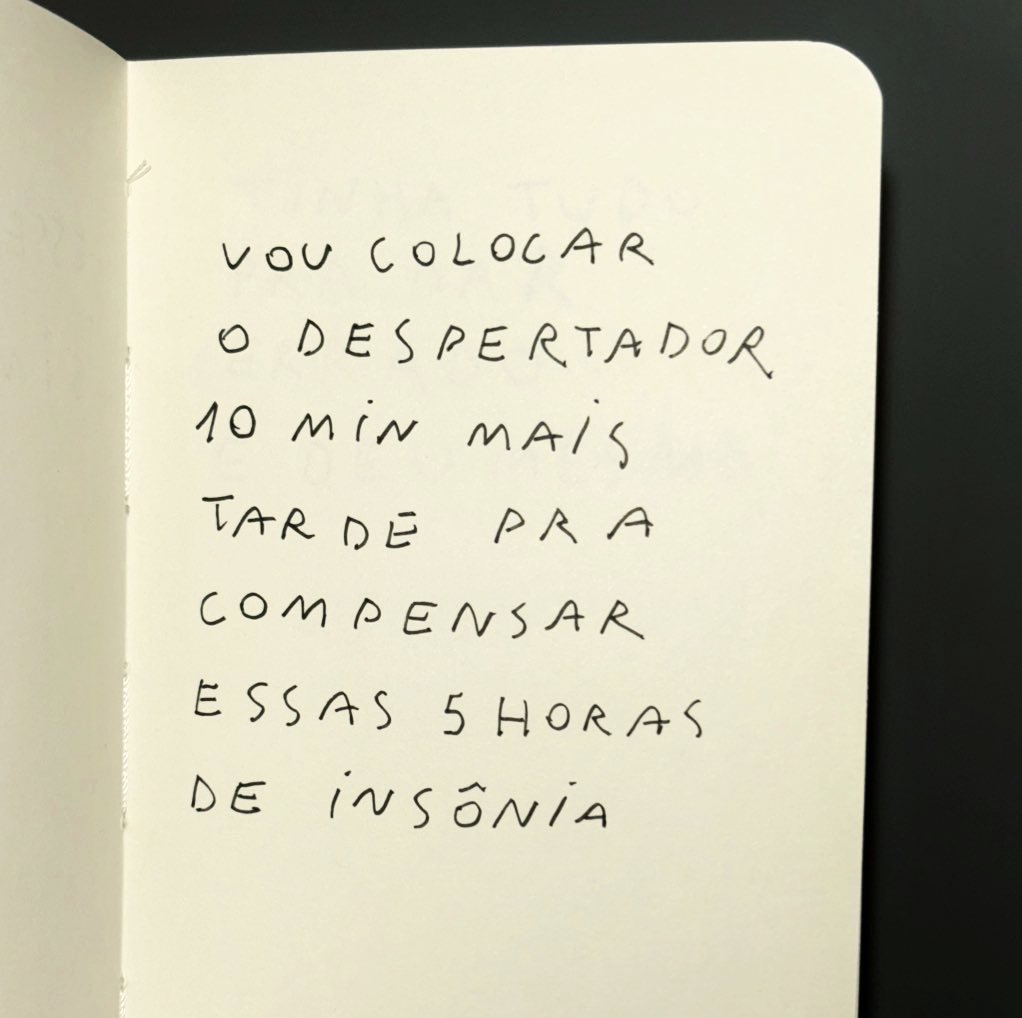 VOU COLOCAR
O DESPERTADOR
10 MIN MAIS
TARDE PRA
COMPENSAR
ESSAS 5 HORAS
DE INSÔNIA